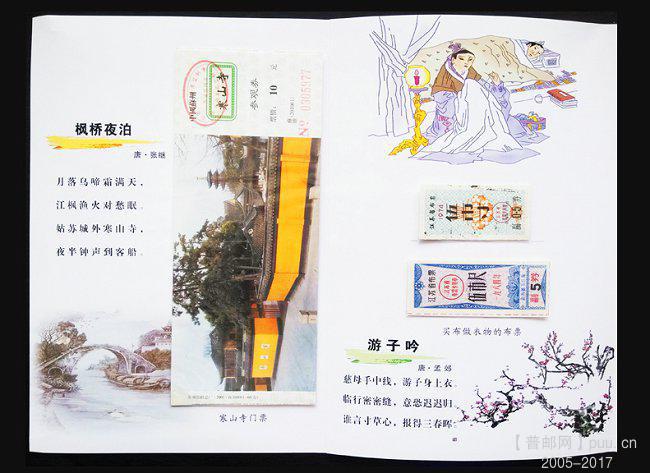 枫桥夜泊
唐·张继
月落乌啼霜满天，
江枫渔火对愁眠。
姑苏城外寒山寺，
夜半钟声到客船。
中国蘇州
寒山寺
参观券
票价：10 元
№ 0305977
寒山寺门票
江苏省布票
1974
伍市寸
江苏省布票
伍市尺
一九八四年
5
买布做衣物的布票
游子吟
唐·孟郊
慈母手中线，游子身上衣。
临行密密缝，意恐迟迟归。
谁言寸草心，报得三春晖。
【普邮网】puu.cn
2005-2017